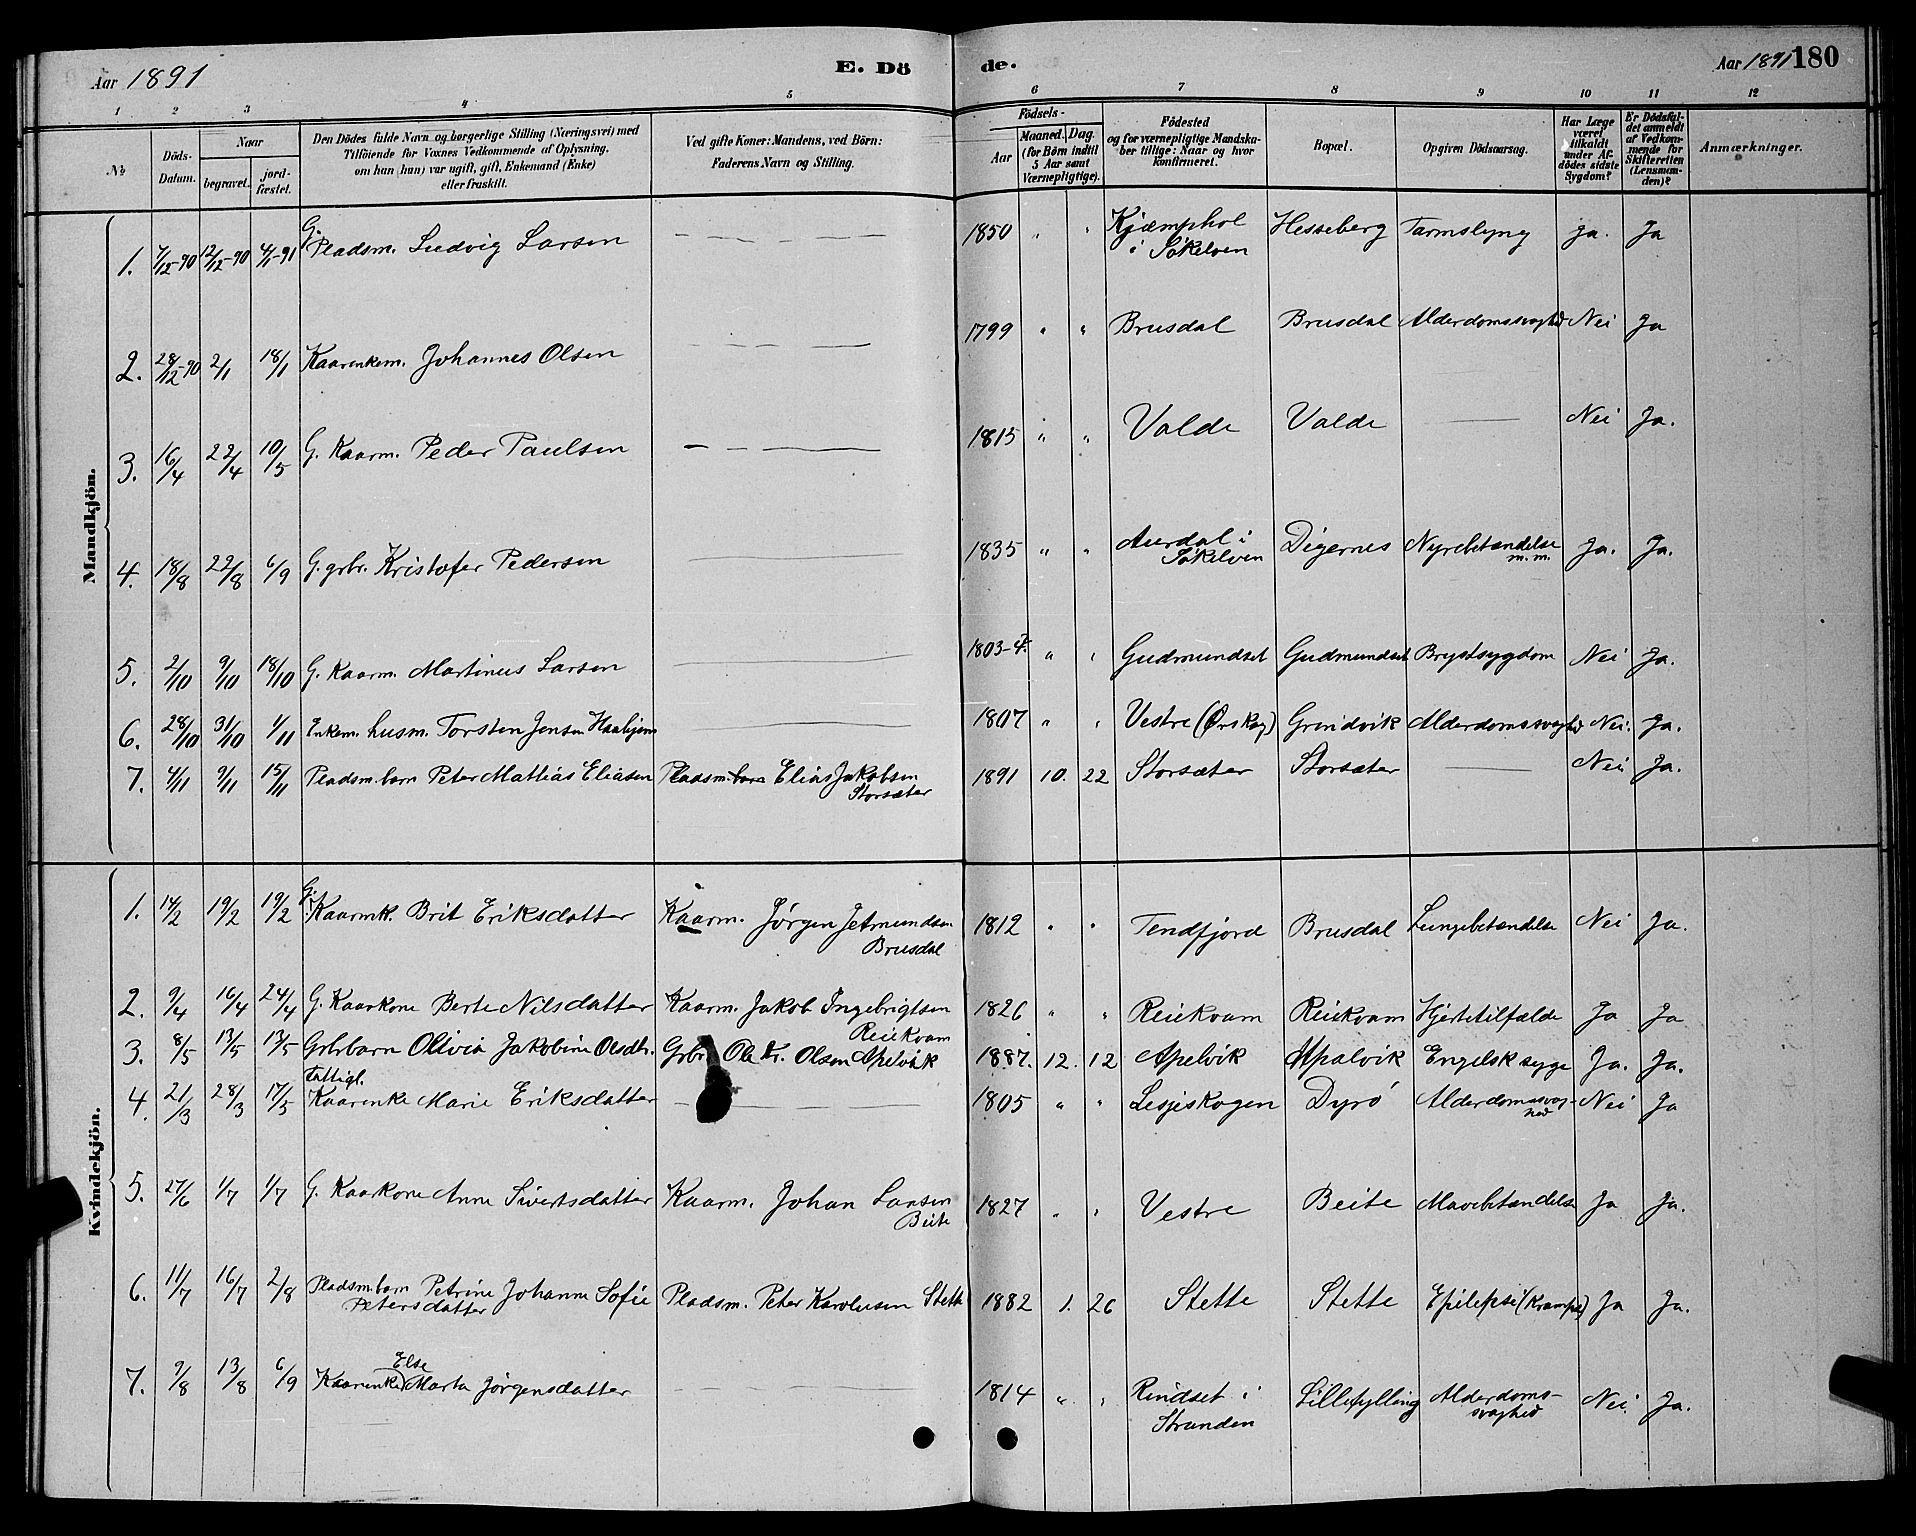 Aar 1891 E. Dö
de. Aar 1891 180
1 2 3 4 5
6 7 8 9 10 11 12
№
Döds-
Datum.
Naar
begravet.
jord-
fæstet.
Den Dödes fulde Navn og borgerlige Stilling (Næringsvei) med
Tilföiende for Voxnes Vedkommende af Oplysning,
om han (hun) var ugift, gift, Enkemand (Enke)
eller fraskilt.
Ved gifte Koner: Mandens, ved Börn:
Faderens Navn og Stilling.
Födsels-
Aar
Maaned. Dag.
(for Börn indtil
5 Aar samt
Værnepligtige).
Födested
og for værnepligtige Mandska-
ber tillige: Naar og hvor
konfirmeret.
Bopæl.
Opgiven Dödsaarsag.
Har Læge
været
tilkaldt
under Af-
dödes sidste
Sygdom?
Er Dödsfal-
det anmeldt
af Vedkom-
mende for
Skifteretten
(Lensman-
den)?
Anmærkninger.
Mandkjön.
1. 7/12-90 12/12-90 4/1-91 G. Pladsm. Ludvig Larsen — — — 1850 " " Kjæmphol Hesseberg Tarmslyng ja. Ja
i Sökelven
2. 28/12-90 2/1 18/1 Kaarenkem. Johannes Olsen — — — 1799 " " Brusdal Brusdal Alderdomssvaghed Nei Ja
3. 16/4 22/4 10/5 G. Kaarm. Peder Paulsen — — — 1815 " " Valde Valde — Nei Ja.
4. 18/8 22/8 6/9 G. grbr. Kristofer Pedersen — 1835 " " Aurdal i Digernes Nyrebetændelse Ja. Ja.
Sökelven m.m.
5. 2/10 9/10 18/10 G. Kaarm. Martinus Larsen — 1803-4. " " Gudmundset Gudmundset Brystsygdom Nei Ja.
6. 28/10 31/10 1/11 Enkem. husm. Torsten Jensen — 1807 " " Vestre (Ørskog) Grendvik Alderdomssvaghed Nei. Ja.
7. 4/11 9/11 15/11 Pladsm.barn Peter Mattias Eliasen Pladsm. barn Elias Jakobsen 1891 10. 22 Storsæter Storsæter — Nei Ja.
Storsæter
Kvindekjön.
1. 14/2 19/2 19/2 G. Kaarmk. Brit Eriksdatter Kaarm. Jörgen Jetmundsen 1812 " " Tendfjord Brusdal Lungebetændelse Nei Ja.
Brusdal
2. 9/4 16/4 24/4 G. Kaarkone Berte Nilsdatter Kaarm. Jakob Ingebrigtsen 1826 " " Reiekvam Reiekvam Hjertetilfælde Ja Ja
Reiekvam
3. 8/5 13/5 13/5 Grbrbarn Olivia Jakobine Olsdtr. Grbr. Ole Kr. Olsen Apelvik 1887. 12. 12 Apelvik Apalvik Engelsk syge Ja. Ja.
fattigl.
4. 21/3 28/3 17/5 Kaarenke Marie Eriksdatter — — 1805 " " Lesjeskogen Dyrö Alderdomssvag- Nei Ja
hed
5. 27/6 1/7 1/7 G. Kaarkone Anne Sivertsdatter Kaarm. Johan Larsen 1827 " " Vestre Beite Mavebetændelse Ja Ja.
Beite
6. 11/7 16/7 2/8 Pladsm.barn Petrine Johanne Sofie Pladsm. Peter Karolusen Stette 1882 1. 26 Stette Stette Epilepsi (Krampe) Ja Ja.
Petersdatter
Else
7. 9/8 13/8 6/9 Kaarenke Marta Jörgensdatter — — — 1814 " " Rindset i Lillefylling Alderdoms- Nei Ja.
Stranden svaghed